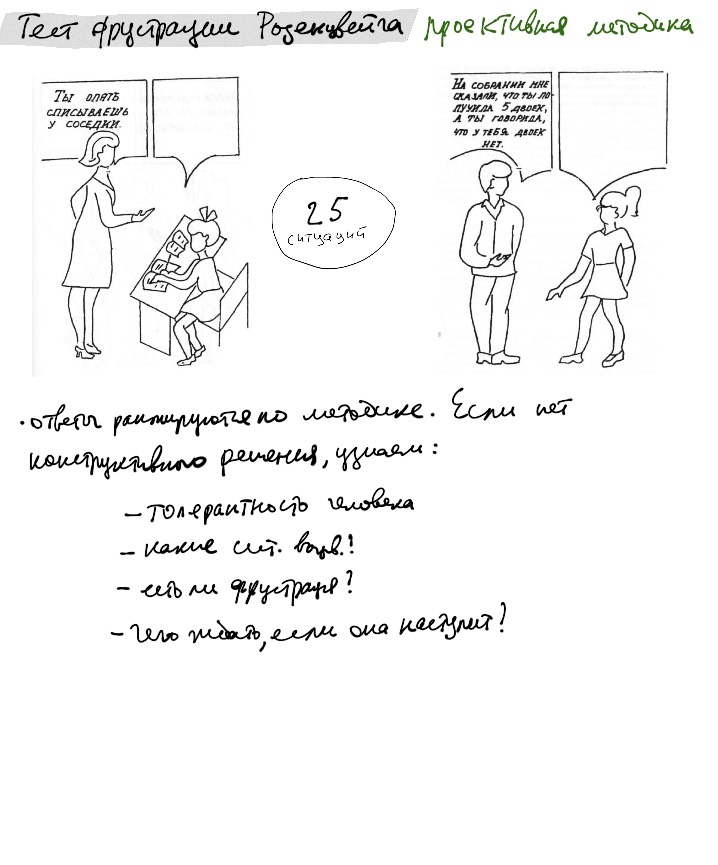 Тест фрустрации Розенцвейга проективная методика
Ты опять
списываешь
у соседки.
На собрании мне
сказали, что ты по-
лучила 5 двоек,
а ты говорила,
что у тебя двоек
нет.
25
ситуаций
• ответы ранжируются по методике. Если нет
конструктивного решения, узнаем:
– толерантность человека
– какие сит. !
– есть ли фрустрация?
– чего ждать, если она наступит?